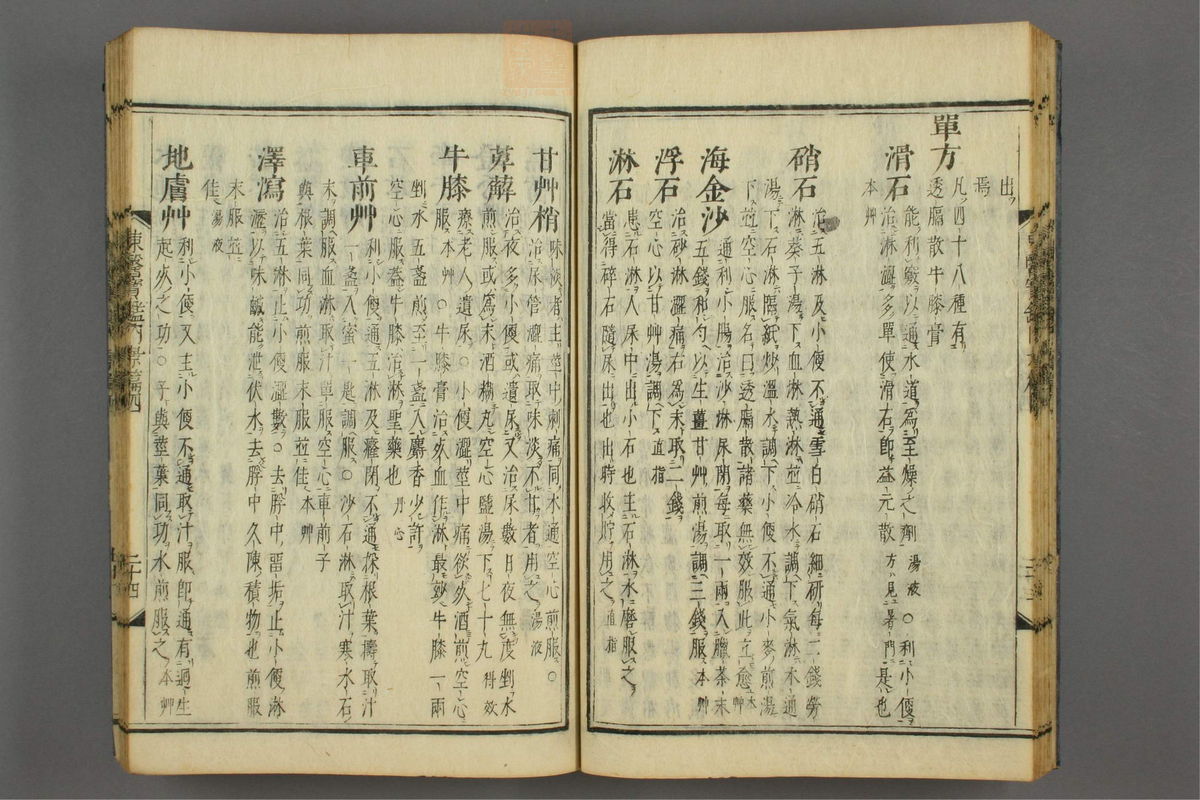 出
焉
單方
凡四十八種有
透膈散牛膝膏
滑石
能利竅以通水道爲至燥之劑湯液○利小便
治淋澀多單使滑石卽益元散方見暑門是也
本艸
硝石
治五淋及小便不通雪白硝石細研每二錢勞
淋葵子湯下血淋熱淋竝冷水調下氣淋木通
湯下石淋隔紙炒溫水調下小便不通小麥煎湯
下竝空心服名曰透膈散諸藥無效服此立愈本艸
海金沙
通利小腸治沙淋尿閉每取一兩入臘茶末
五錢和勻以生薑甘艸煎湯調三錢服本艸
浮石
治砂淋澀痛右爲末取二錢
空心以甘艸湯調下直指
淋石
患石淋人尿中出小石也主石淋水磨服之
當得碎石隨尿出也出時收貯用之直指
甘艸梢
味淡者主莖中刺痛同木通空心煎服○
治尿管澀痛取味淡不甘者用之湯液
萆薢
治夜多小便或遺尿又治尿數日夜無度剉水
煎服或爲末酒糊丸空心鹽湯下七十丸得效
牛膝
療老人遺尿○小便澀莖中痛欲死酒煎空心
服本艸○牛膝膏治死血作淋最玅牛膝一兩
剉水五盞煎至一盞入麝香少許
空心服蓋牛膝治淋聖藥也丹心
車前艸
利小便通五淋及癃閉不通採根葉擣取汁
一盞入蜜一匙調服○沙石淋取汁寒水石
末調服血淋取汁單服空心車前子
與根葉同功煎服末服竝佳本艸
澤瀉
治五淋止小便澀數○去脬中留垢止小便淋
瀝以味鹹能泄伏水去脬中久陳積物也煎服
末服竝
佳湯液
地膚艸
利小便又主小便不通取汁服卽通有過生
起死之功○子與莖葉同功水煎服之本艸
東醫寶鑑內景篇四
二十四